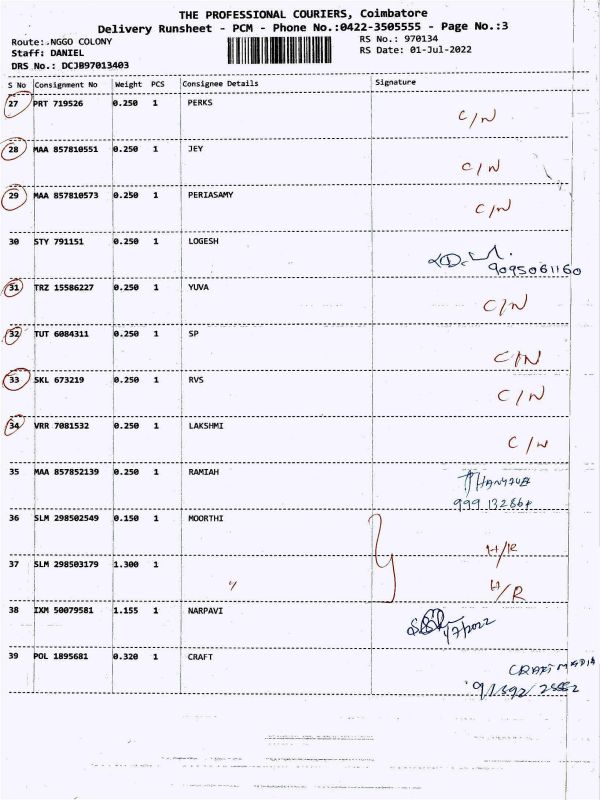 THE PROFESSIONAL COURIERS, Coimbatore
Delivery Runsheet - PCM - Phone No.:0422-3505555 - Page No.:3
Route: NGGO COLONY
RS No.: 970134
Staff: DANIEL
RS Date: 01-Jul-2022
DRS No.: DCJB97013403
S No Consignment No Weight PCS Consignee Details Signature
27 PRT 719526 0.250 1 PERKS C/N
28 MAA 857810551 0.250 1 JEY C/N
29 MAA 857810573 0.250 1 PERIASAMY C/N
30 STY 791151 0.250 1 LOGESH
9095061160
31 TRZ 15586227 0.250 1 YUVA C/N
32 TUT 6084311 0.250 1 SP C/N
33 SKL 673219 0.250 1 RVS C/N
34 VRR 7081532 0.250 1 LAKSHMI C/N
35 MAA 857852139 0.250 1 RAMIAH
36 SLM 298502549 0.150 1 MOORTHI H/R
37 SLM 298503179 1.300 1 " H/R
38 IXM 50079581 1.155 1 NARPAVI
1/7/2022
39 POL 1895681 0.320 1 CRAFT